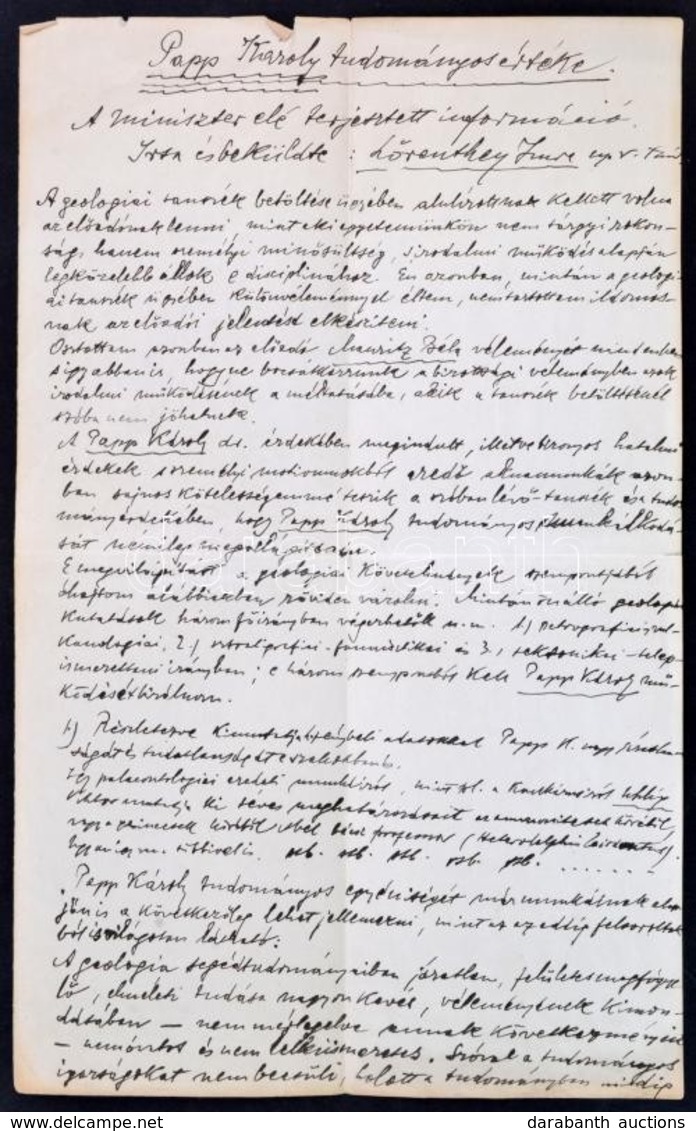 Papp Károly tudományos értéke.
A miniszter elé terjesztett információ.
Irta és beküldte : Lőrenthey Imre ny. r. tan.
A geologiai tanszék betöltése ügyében alulirottnak kellett volna
az előadónak lenni, mint aki egyetemünkön nem tárgyi rokon-
ság, hanem személyi minősültség, s irodalmi működés alapján
legközelebb állok e disciplinához. Én azonban, miután a geologi-
ai tanszék ügyében különvéleménnyel éltem, nem tartottam ildomos-
nak az előadói jelentést elkésziteni.
Osztottam azonban az előadó Mauritz Béla véleményét mindenben
s igy abban is, hogy ne bocsátkozzunk a bizottsági véleményben azok
irodalmi működésének a méltatásába, akik a tanszék betöltésénél
szóba nem jöhetnek.
A Papp Károly dr. érdekében megindult, illetve bizonyos hatalmi
érdekek s személyi motivumokból eredő aknamunkák azon-
ban sajnos kötelességemmé teszik a szóban lévő tanszék és a tudo-
mány érdekében, hogy Papp Károly tudományos munkálkodá-
sát
E megvilágitást a geologiai követelmények szempontjából
óhajtom alábbiakban röviden vázolni. Miután önálló geologiai
kutatások három főirányban végezhetők u.m. 1) petrografiai-vul-
kanologiai, 2.) stratigrafiai-faunistikai és 3., tektonikai-telep-
ismerettani irányban; e három szempontból kell Papp Károly mű-
ködését birálnom.
1) Részletezve kimutatja ténybeli adatokkal Papp K. nagy járatlan-
ságát és tudatlanságát e szakokban.
Egy palaeontologiai eredeti munkáiról, mint pl. a Kaukázusiról Uhlig
Viktor mutatja ki téves meghatározásait az ammonitesek köréből,
professor (Heterodelphis leiodontus).
stb. stb. stb. stb. stb. . . . . . .
"Papp Károly tudományos egyéniségét már munkáinak alap-
ján is a következőleg lehet jellemezni, mint az az eddig felsoroltak-
ból is világosan látható:
A geologia segédtudományaiban járatlan, felületes megfigye-
lő, elméleti tudása nagyon kevés, véleményének kimon-
dásában – nem mérlegelve annak következményeit
– nem óvatos és nem lelkiismeretes. Szóval a tudományos
igazságokat nem becsüli, holott a tudományban mindig
darabanth
darabanth auctions
www.delcampe.net